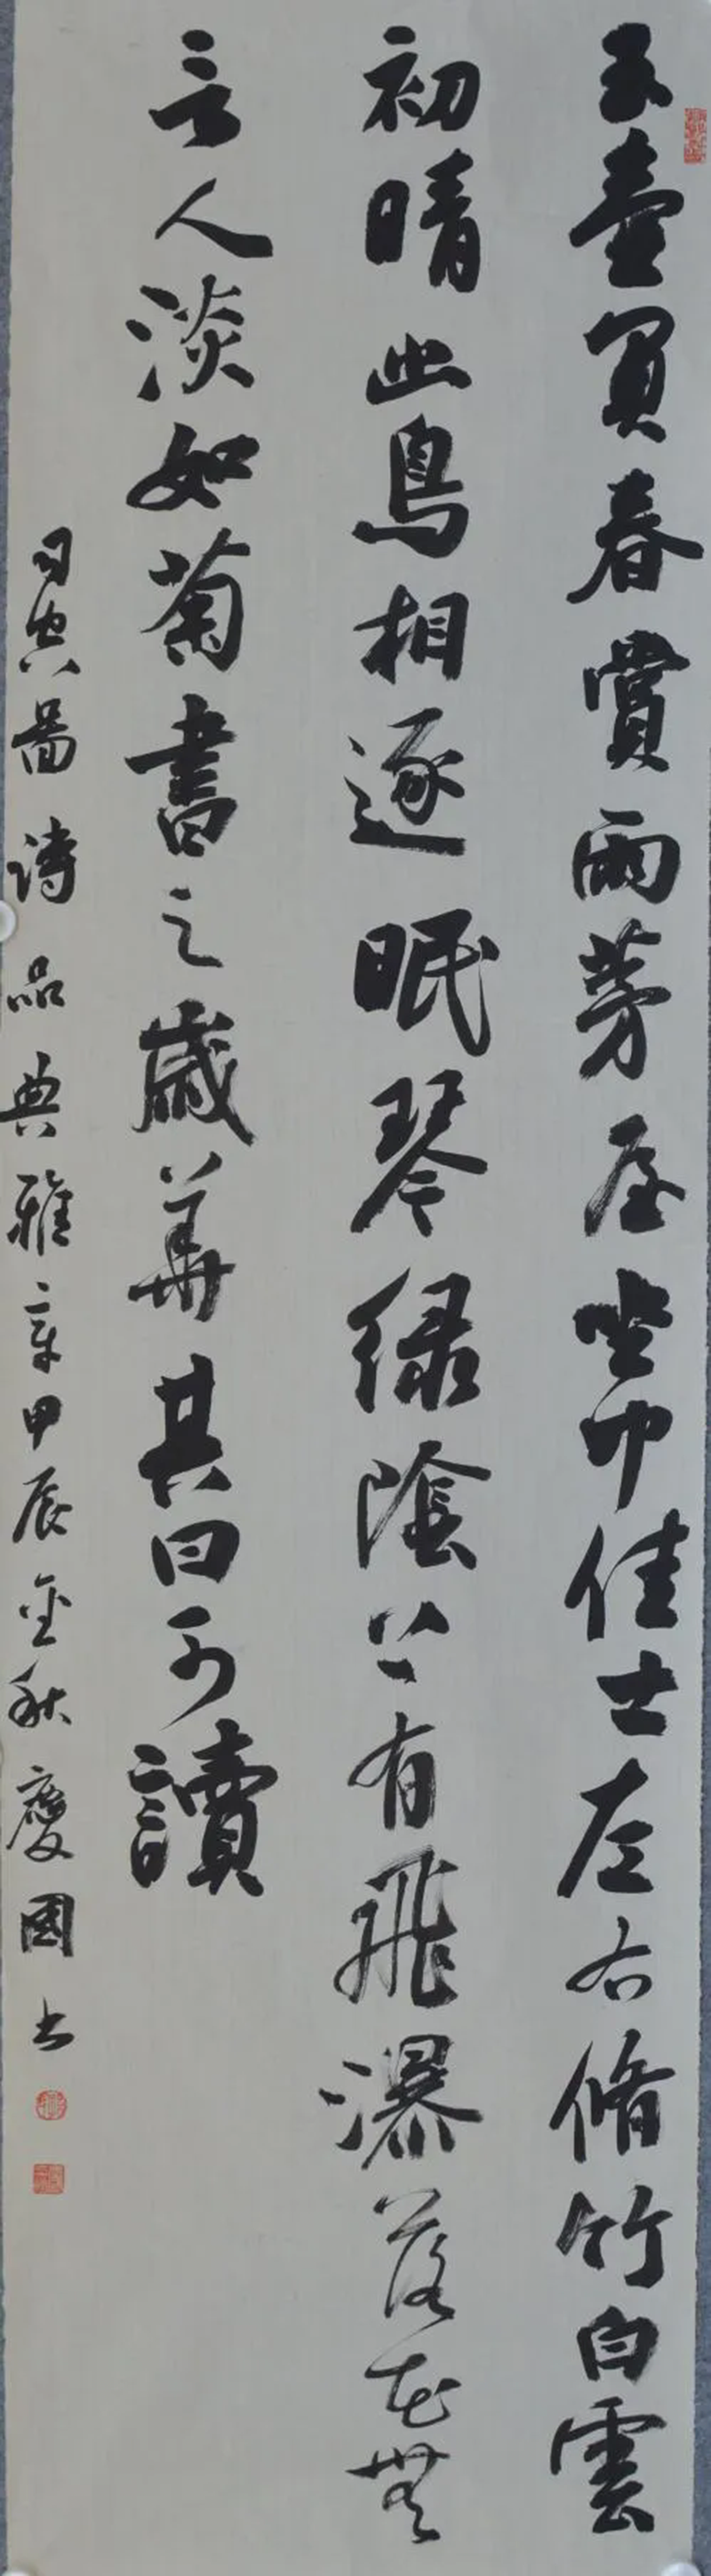 玉壺買春賞雨茅屋坐中佳士左右脩竹白雲
初晴幽鳥相逐眠琴緑陰上有飛瀑落花無
言人淡如菊書之歲華其曰可讀
司空圖詩品典雅章甲辰金秋慶國书